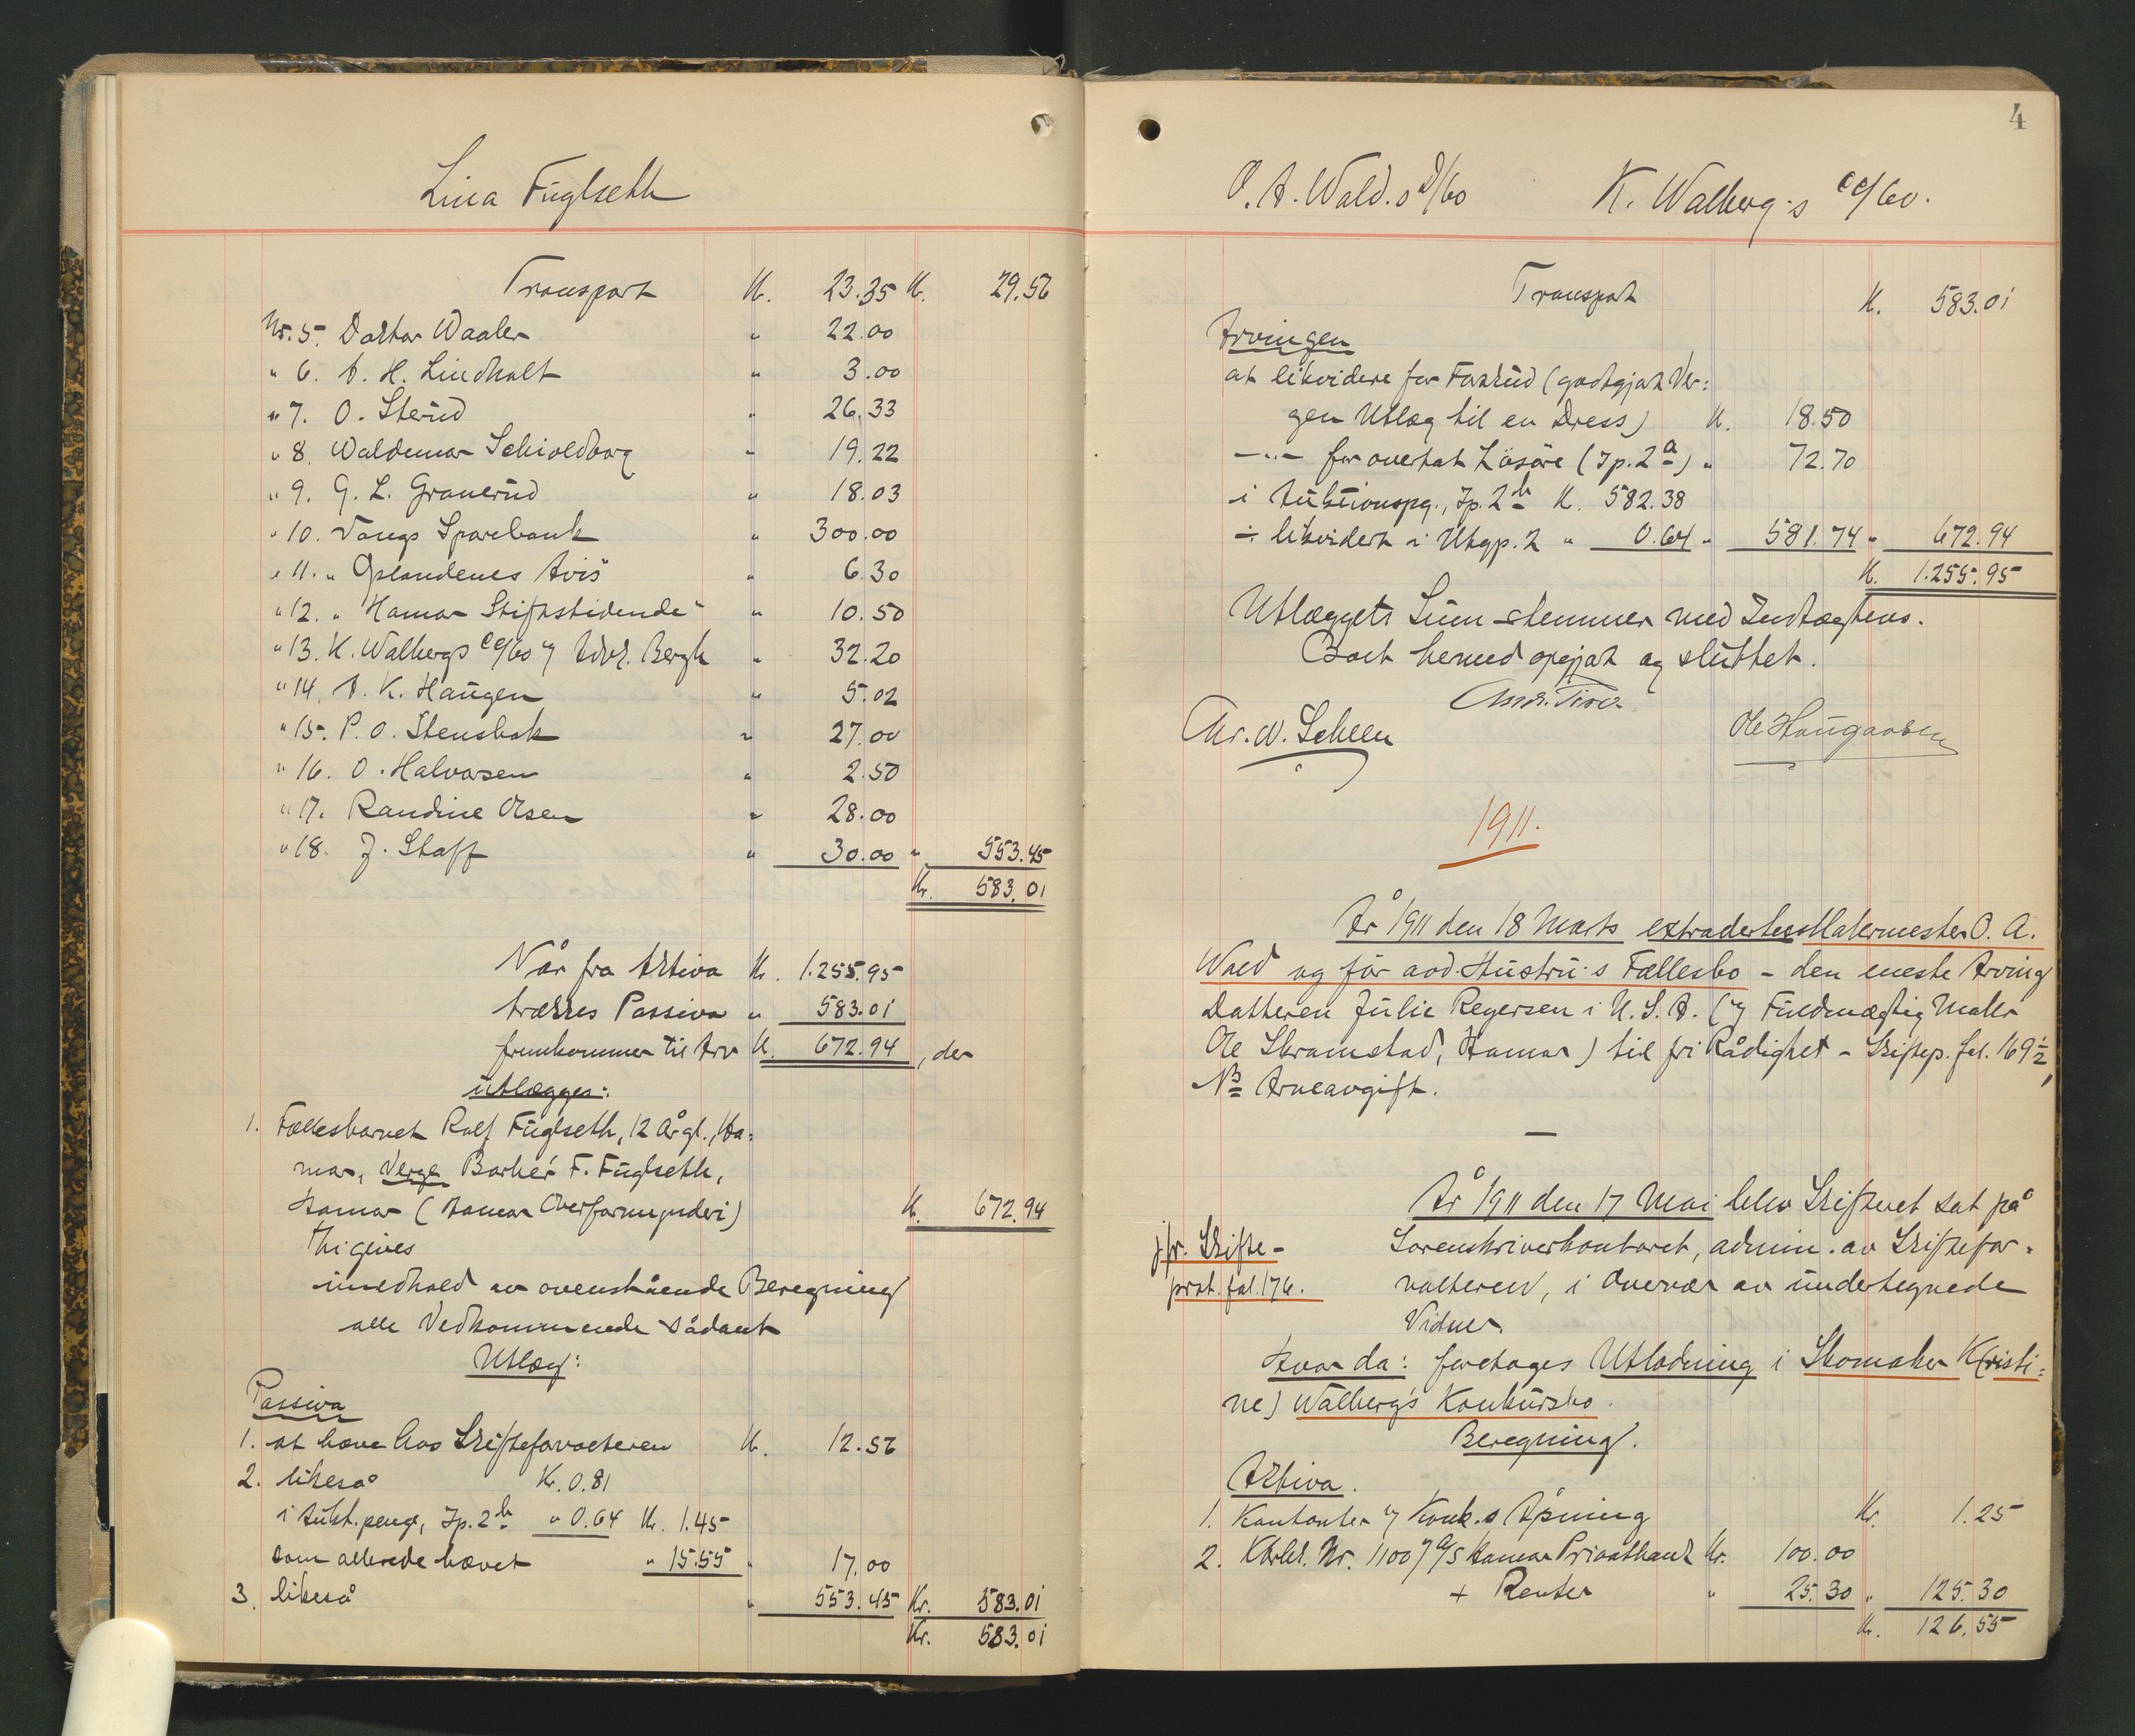 Lina Fuglseth
Transport K. 23.35 K. 29.56
Nr. 5. Doktor Waaler " 22.00
" 6. A. H. Lindholt " 3.00
" 7. O. Sterud " 26.33
" 8. Waldemar Schioldborg " 19.22
" 9. G. L. Granerud " 18.03
" 10. Vangs Sparebank " 300.00
" 11. "Oplandenes Avis" " 6.30
" 12. "Hamar Stiftstidende" " 10.50
" 13. K. Walbergs cc/bo v/ Adv. Bergh " 32.20
" 14. A. K. Haugen " 5.02
" 15. P. O. Stensbak " 27.00
" 16. O. Halvorsen " 2.50
" 17. Randine Olsen " 28.00
" 18. J. Staff " 30.00 " 553.45
Kr. 583.01
Når fra Aktiva Kr. 1.255.95
trækkes Passiva " 583.01
fremkommer til Arv K. 672.94, der
utlægges:
1. Fællesbarnet Rolf Fuglseth, 12 Årgl., Ha=
mar, Verge Barber F. Fuglseth,
Hamar (Hamar Overformynderi) K. 672.94
Thi gives
i medhold av ovenstående Beregning
alle Vedkommende sådant
Utlæg:
Passiva
1. at hæve hos Skifteforvalteren K. 12.56
2. likeså Kr. 0.81
i Aukt.penge, Ip. 2 b " 0.64 Kr. 1.45
som allerede hævet " 15.55 " 17.00
3. likeså " 553.45 Kr. 583.01
Kr. 583.01
4
O. A. Wald.s D/bo K. Walberg.s cc/bo.
Transport K. 583.01
Arvingen
at likvidere for Forskud (godtgjort Ver=
gen Utlæg til en Dress) K. 18.50
—"— for overtat Løsøre (Ip. 2 a) " 72.70
i Auktionspg., Ip. 2 b K. 582.38
÷ likvidert i Utgp. 2 " 0.64 " 581.74 " 672.94
K. 1.255.95
Utlæggets Sum stemmer med Indtægtens.
Boet hermed opgjort og sluttet.
Chr. W. Scheen Ole Haugaasen
1911.
År 1911 den 18 Marts extradertes Malermester O. A.
Wald og før avd. Hustru.s Fællesbo - den eneste Arving
Datteren Julie Regersen i U.S.A. (v/ Fuldmægtig Maler
Ole Skramstad, Hamar) til fri Rådighet - Skiftep. fol. 169 1/2,
NB Arveavgift.
—
År 1911 den 17 Mai blev Skifteret sat på
Sorenskriverkontoret, admin. av Skiftefor=
valteren, i Overvær av undertegnede
Vidner.
jfr. Skifte-
prot. fol. 176.
Hvor da: foretages Utlodning i Skomaker K(risti=
ne) Walberg's Konkursbo.
Beregning.
Aktiva.
1. Kontanter v/ Konk.s Åpning Kr. 1.25
2. Kbrkl. Nr. 1100 v/ A/S Hamar Privatbank Kr. 100.00
+ Renter " 25.30 " 125.30
K. 126.55